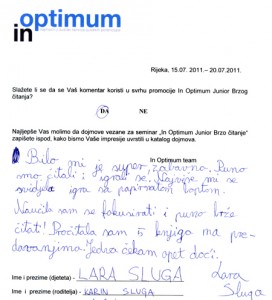 in optimum
Rijeka, 15.07. 2011.– 20.07.2011.
Slažete li se da se Vaš komentar koristi u svrhu promocije In Optimum Junior Brzog
čitanja?
DA NE
Najljepše Vas molimo da dojmove vezane za seminar „In Optimum Junior Brzo čitanje"
zapišete ispod, kako bismo Vaše impresije uvrstili u katalog dojmova.
In Optimum team
Bilo mi je super zabavno. Puno
smo čitali i igrali se. Najviše mi se
svidjela igra sa papirnatom loptom.
Naučila sam se fokusirati i puno brže
čitat! Pročitala sam 5 knjiga na pre-
davanjima. Jedva čekam opet doći.
Lara
Sluga
Ime i prezime (djeteta) - LARA SLUGA
Ime i prezime (roditelja) - KARIN SLUGA